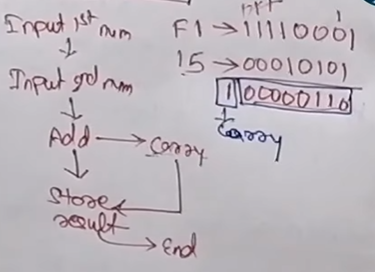 Input 1st num
Input 2nd num
Add → Carry
Store
result
→ End
1
F1 → 11110001
15 → 00010101
1 00000110
Carry